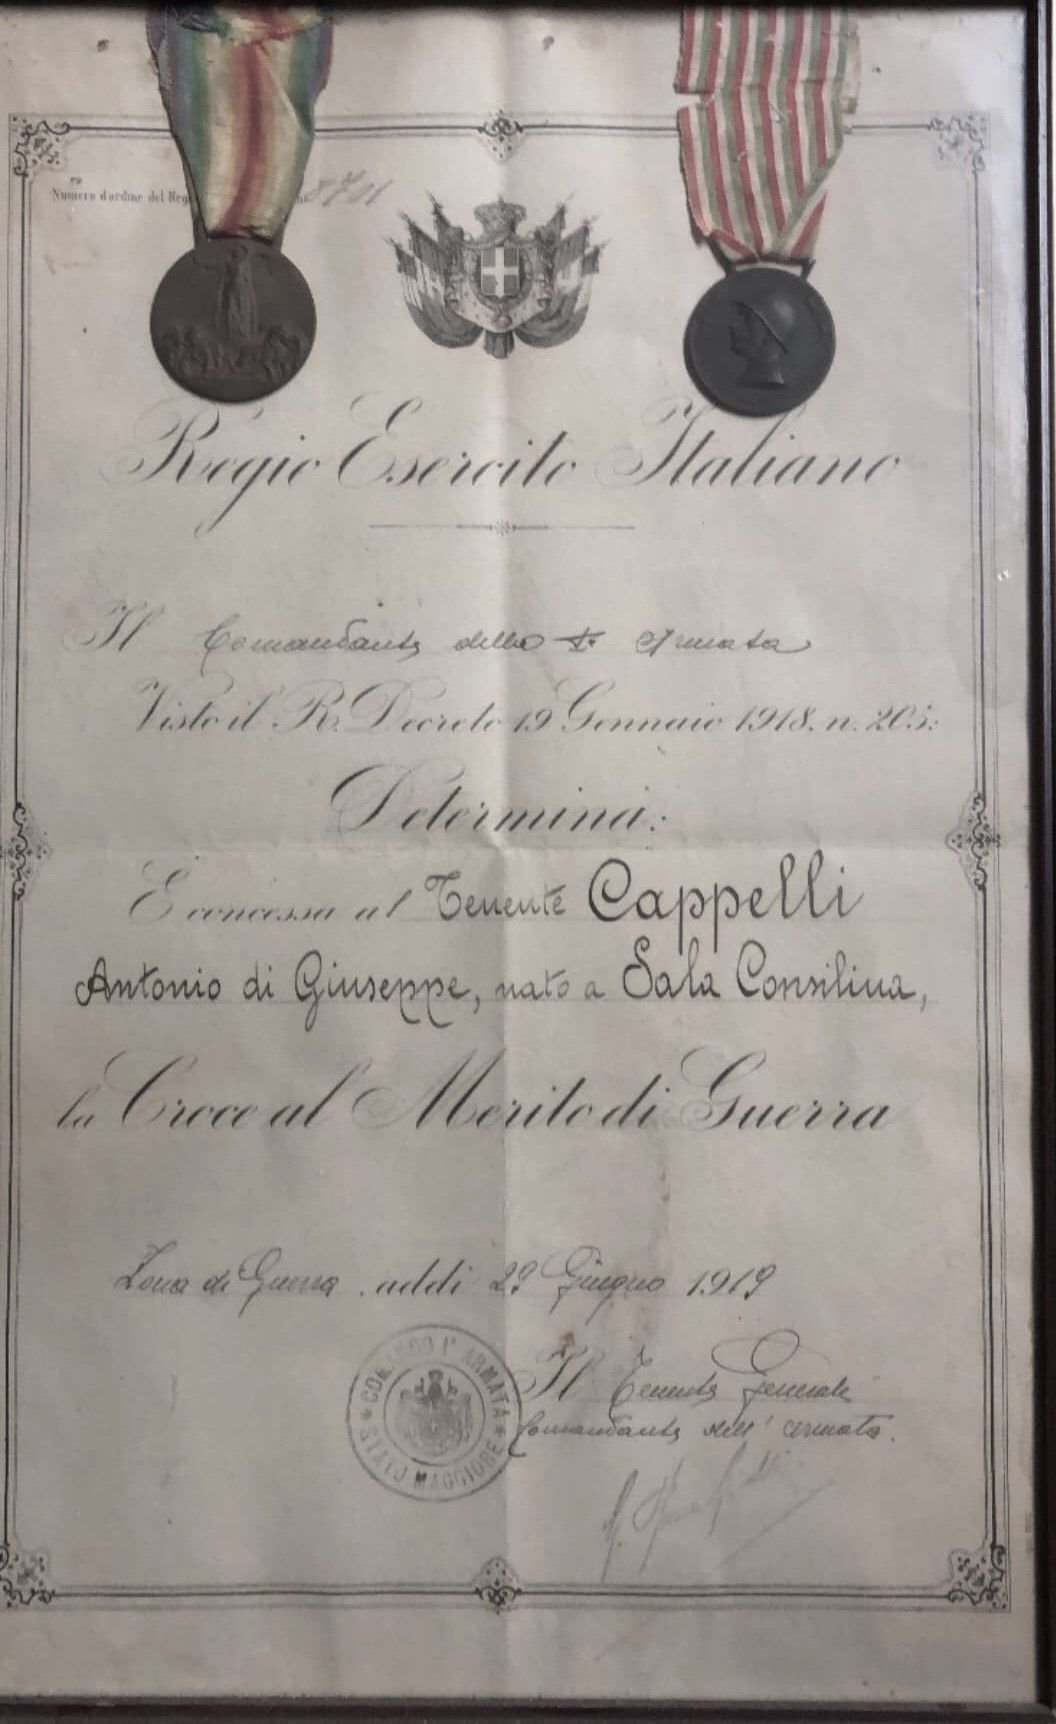 Numero d'ordine del Reg
8701
Regio Esercito Italiano
Il Comandante della I.ª Armata
Visto il R. Decreto 19 Gennaio 1918. n. 205:
Determina:
È concessa al Tenente Cappelli
Antonio di Giuseppe, nato a Sala Consilina,
la Croce al Merito di Guerra
Zona di Guerra, addì 29 Giugno 1919
COMANDO Iª ARMATA
STATO MAGGIORE
Il Tenente Generale
Comandante dell'Armata.